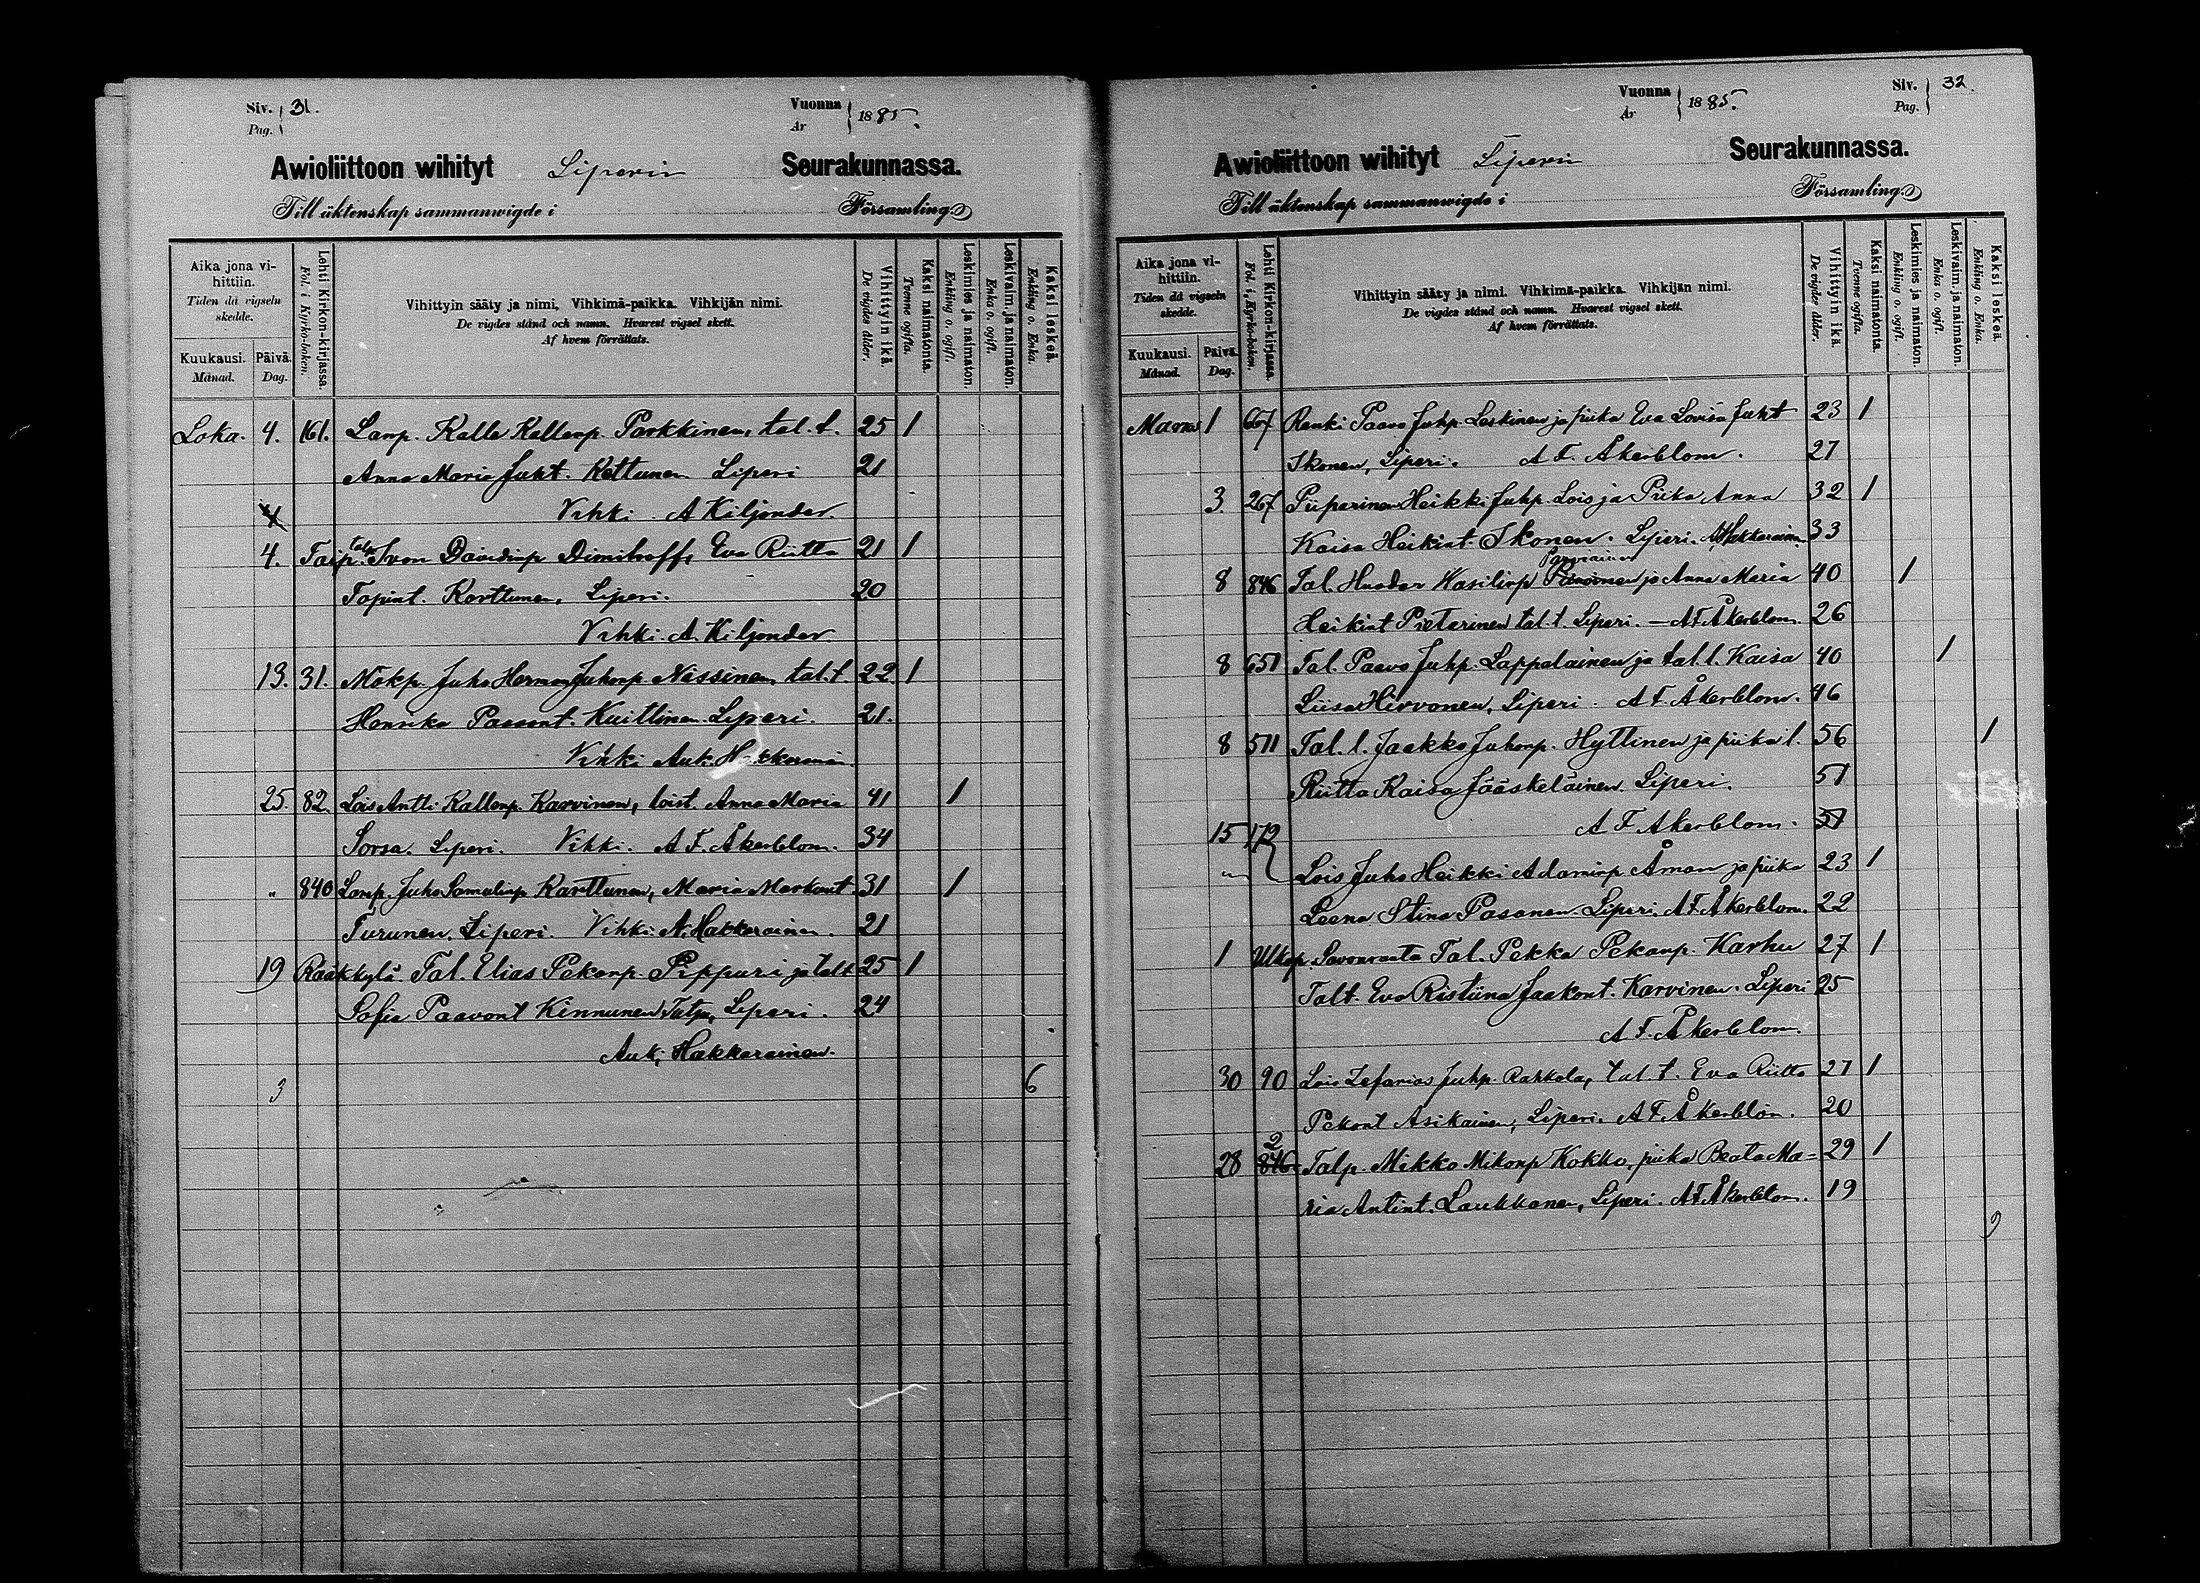 Siv. Pag. 31.
Vuonna År 1885.
Awioliittoon wihityt Liperin Seurakunnassa.
Till äktenskap sammanwigde i Församling
Aika jona vihittiin. Tiden då vigseln skedde.
Kuukausi. Månad.
Päivä. Dag.
Lehti Kirkon-kirjassa. Fol. i Kyrko-boken.
Vihittyin sääty ja nimi. Vihkimä-paikka. Vihkijän nimi.
De vigdes stånd och namn. Hvarest vigsel skett.
Af hvem förrättats.
Vihittyin ikä. De vigdes ålder.
Kaksi naimatonta. Tvenne ogifta.
Leskimies ja naimaton. Enkling o. ogift.
Leskivaim. ja naimaton. Enka o. ogift.
Kaksi leskeä. Enkling o. Enka.
Loka. 4. 161. Lamp. Kalle Kallenp. Parkkinen, tal. t. 25 1
Anna Maria Juht. Kettunen Liperi 21
Vihki A Kiljander.
4. Taip. talp. Ivon Davidinp Dimitroff, Eva Riitta 21 1
Tapint. Korttunen, Liperi. 20
Vihki. A. Kiljander
13. 31. Mökp. Juho Herman Juhonp Nissinen, tal. t 22. 1
Henrika Paavont. Kuittinen Liperi. 21.
Vihki Auk. Hakkarainen
25. 82. Lois Antti Kallenp. Karvinen, loist. Anna Maria 41 1
Sorsa. Liperi. Vihki. A F. Åkerblom. 34
" 840 Lamp. Juho Samulinp Karttunen, Maria Markunt 31 1
Turunen. Liperi. Vihki A. Hakkarainen. 21
19 Rääkkylä. Tal. Elias Pekanp Pippuri ja talt 25 1
Sofia Paavont Kinnunen Liperi. 24
Auk. Hakkarainen.
3 6
Siv. Pag. 32.
Vuonna År 1885.
Awioliittoon wihityt Liperin Seurakunnassa.
Till äktenskap sammanwigde i Församling
Aika jona vihittiin. Tiden då vigseln skedde.
Kuukausi. Månad.
Päivä. Dag.
Lehti Kirkon-kirjassa. Fol. i Kyrko-boken.
Vihittyin sääty ja nimi. Vihkimä-paikka. Vihkijän nimi.
De vigdes stånd och namn. Hvarest vigsel skett.
Af hvem förrättats.
Vihittyin ikä. De vigdes ålder.
Kaksi naimatonta. Tvenne ogifta.
Leskimies ja naimaton. Enkling o. ogift.
Leskivaim. ja naimaton. Enka o. ogift.
Kaksi leskeä. Enkling o. Enka.
Marras 1 667 Renki Paavo Juhp. Leskinen ja piika Eva Lovisa Juht 23 1
Ikonen, Liperi. A F. Åkerblom. 27
3. 267 Piiparinen Heikki Juhp. Lois ja Piika Anna 32 1
Kaisa Heikint. Ikonen. Liperi. A Hakkarainen 33
8 846 Tal. Huodar Wasilinp ja Anna Maria 40 1
Heikint Pietarinen tal. t. Liperi. — A F. Åkerblom. 26
8 651 Tal. Paavo Juhp. Lappalainen ja tal. l. Kaisa 40 1
Liisa Hirvonen, Liperi. A F. Åkerblom. 46
8 511 Tal. l. Jaakko Juhonp. Hyttinen ja piika l. 56 1
Riitta Kaisa Jääskeläinen Liperi. 51
15 172 A F. Åkerblom. 51
" Lois Juho Heikki Adaminp Åman ja piika 23 1
Leena Stina Pasanen. Liperi. A F. Åkerblom. 22
1 Ulkop. Savonranta Tal. Pekka Pekanp. Karhu 27 1
Talt. Eva Ristiina Jaakont. Karvinen. Liperi 25
A F. Åkerblom.
30 90 Lois Zefarias Juhp. Rahkola, tal. t. Eva Riitta 27 1
Pekont Asikainen, Liperi. A F. Åkerblom. 20
2
28 846 Talp. Mikko Mikonp Kokko, piika Beata Ma= 29 1
ria Antint. Laukkanen, Liperi. A F. Åkerblom. 19
9